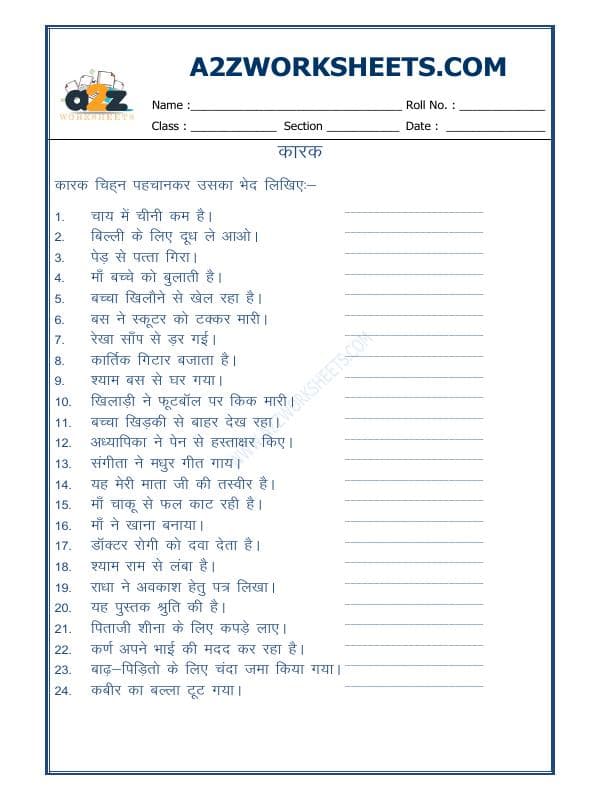 A2ZWORKSHEETS.COM
a2z
WORKSHEETS
Name : Roll No. :
Class : Section Date :
कारक
कारक चिह्न पहचानकर उसका भेद लिखिए:–
1. चाय में चीनी कम है।
2. बिल्ली के लिए दूध ले आओ।
3. पेड़ से पत्ता गिरा।
4. माँ बच्चे को बुलाती है।
5. बच्चा खिलौने से खेल रहा है।
6. बस ने स्कूटर को टक्कर मारी।
7. रेखा साँप से ड़र गई।
8. कार्तिक गिटार बजाता है।
9. श्याम बस से घर गया।
10. खिलाड़ी ने फूटबॉल पर किक मारी।
11. बच्चा खिड़की से बाहर देख रहा।
12. अध्यापिका ने पेन से हस्ताक्षर किए।
13. संगीता ने मधुर गीत गाय।
14. यह मेरी माता जी की तस्वीर है।
15. माँ चाकू से फल काट रही है।
16. माँ ने खाना बनाया।
17. डॉक्टर रोगी को दवा देता है।
18. श्याम राम से लंबा है।
19. राधा ने अवकाश हेतु पत्र लिखा।
20. यह पुस्तक श्रुति की है।
21. पिताजी शीना के लिए कपड़े लाए।
22. कर्ण अपने भाई की मदद कर रहा है।
23. बाढ़–पिड़ितो के लिए चंदा जमा किया गया।
24. कबीर का बल्ला टूट गया।
WWW.A2ZWORKSHEETS.COM